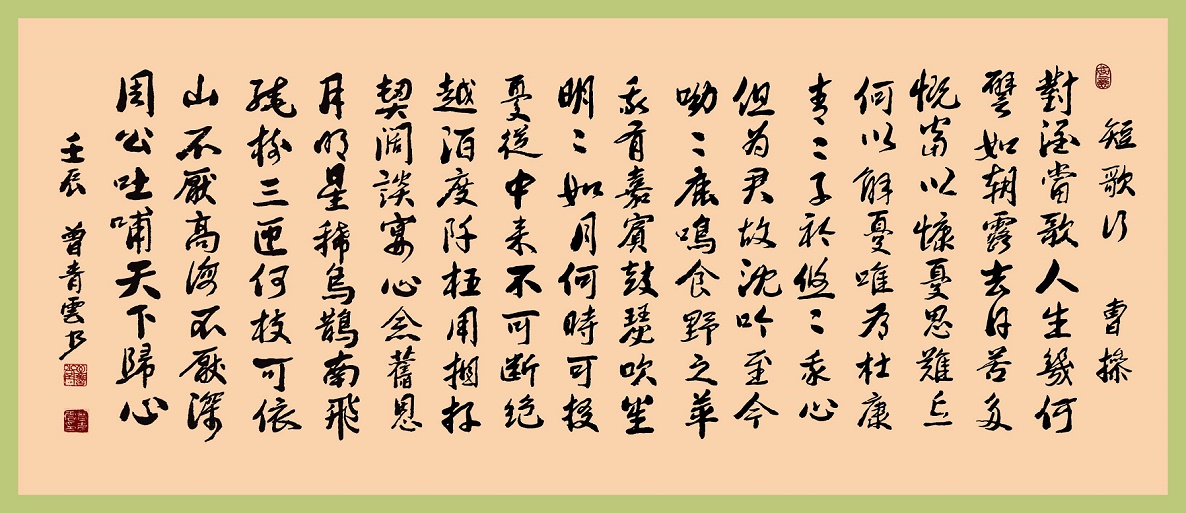 短歌行 曹操
對酒當歌人生幾何
譬如朝露去日苦多
慨當以慷憂思難忘
何以解憂唯有杜康
青〻子衿悠〻我心
但为君故沈吟至今
呦〻鹿鳴食野之苹
我有嘉賓鼓瑟吹笙
明〻如月何時可掇
憂從中来不可断绝
越陌度阡枉用相存
契闊談宴心念舊恩
月明星稀烏鵲南飛
绕樹三匝何枝可依
山不厭高海不厭深
周公吐哺天下歸心
壬辰 曾青雲书